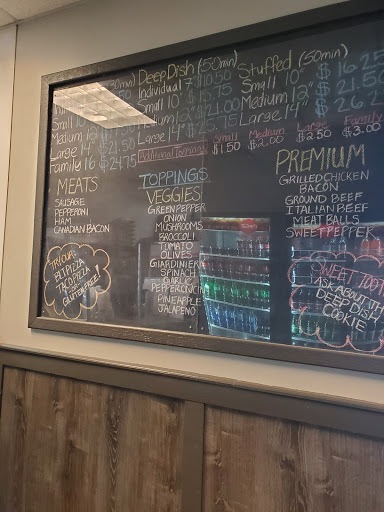 Deep Dish (50min)
Individual 7" $10.50
Small 10" $15.75
Medium 12" $21.00
Large 14" $25.75
Stuffed (50min)
Small 10" $16.25
Medium 12" $21.5
Large 14" $26.2
Small
Medium 12
Large 14" $21.50
Family 16 $24.75
Additional Toppings
Small $1.50
Medium $2.00
Large $2.50
Family $3.00
MEATS
SAUSAGE
PEPPERONI
HAM
CANADIAN BACON
TOPPINGS
VEGGIES
GREEN PEPPER
ONION
MUSHROOMS
BROCCOLI
TOMATO
OLIVES
GIARDINIERA
SPINACH
GARLIC
PEPPERONCINI
PINEAPPLE
JALAPENO
PREMIUM
GRILLED CHICKEN
BACON
GROUND BEEF
ITALIAN BEEF
MEAT BALLS
SWEET PEPPER
TRY OUR
BLT PIZZA
TACO PIZZA
GLUTEN FREE
SWEET TOOTH
ASK ABOUT
DEEP DISH
COOKIE